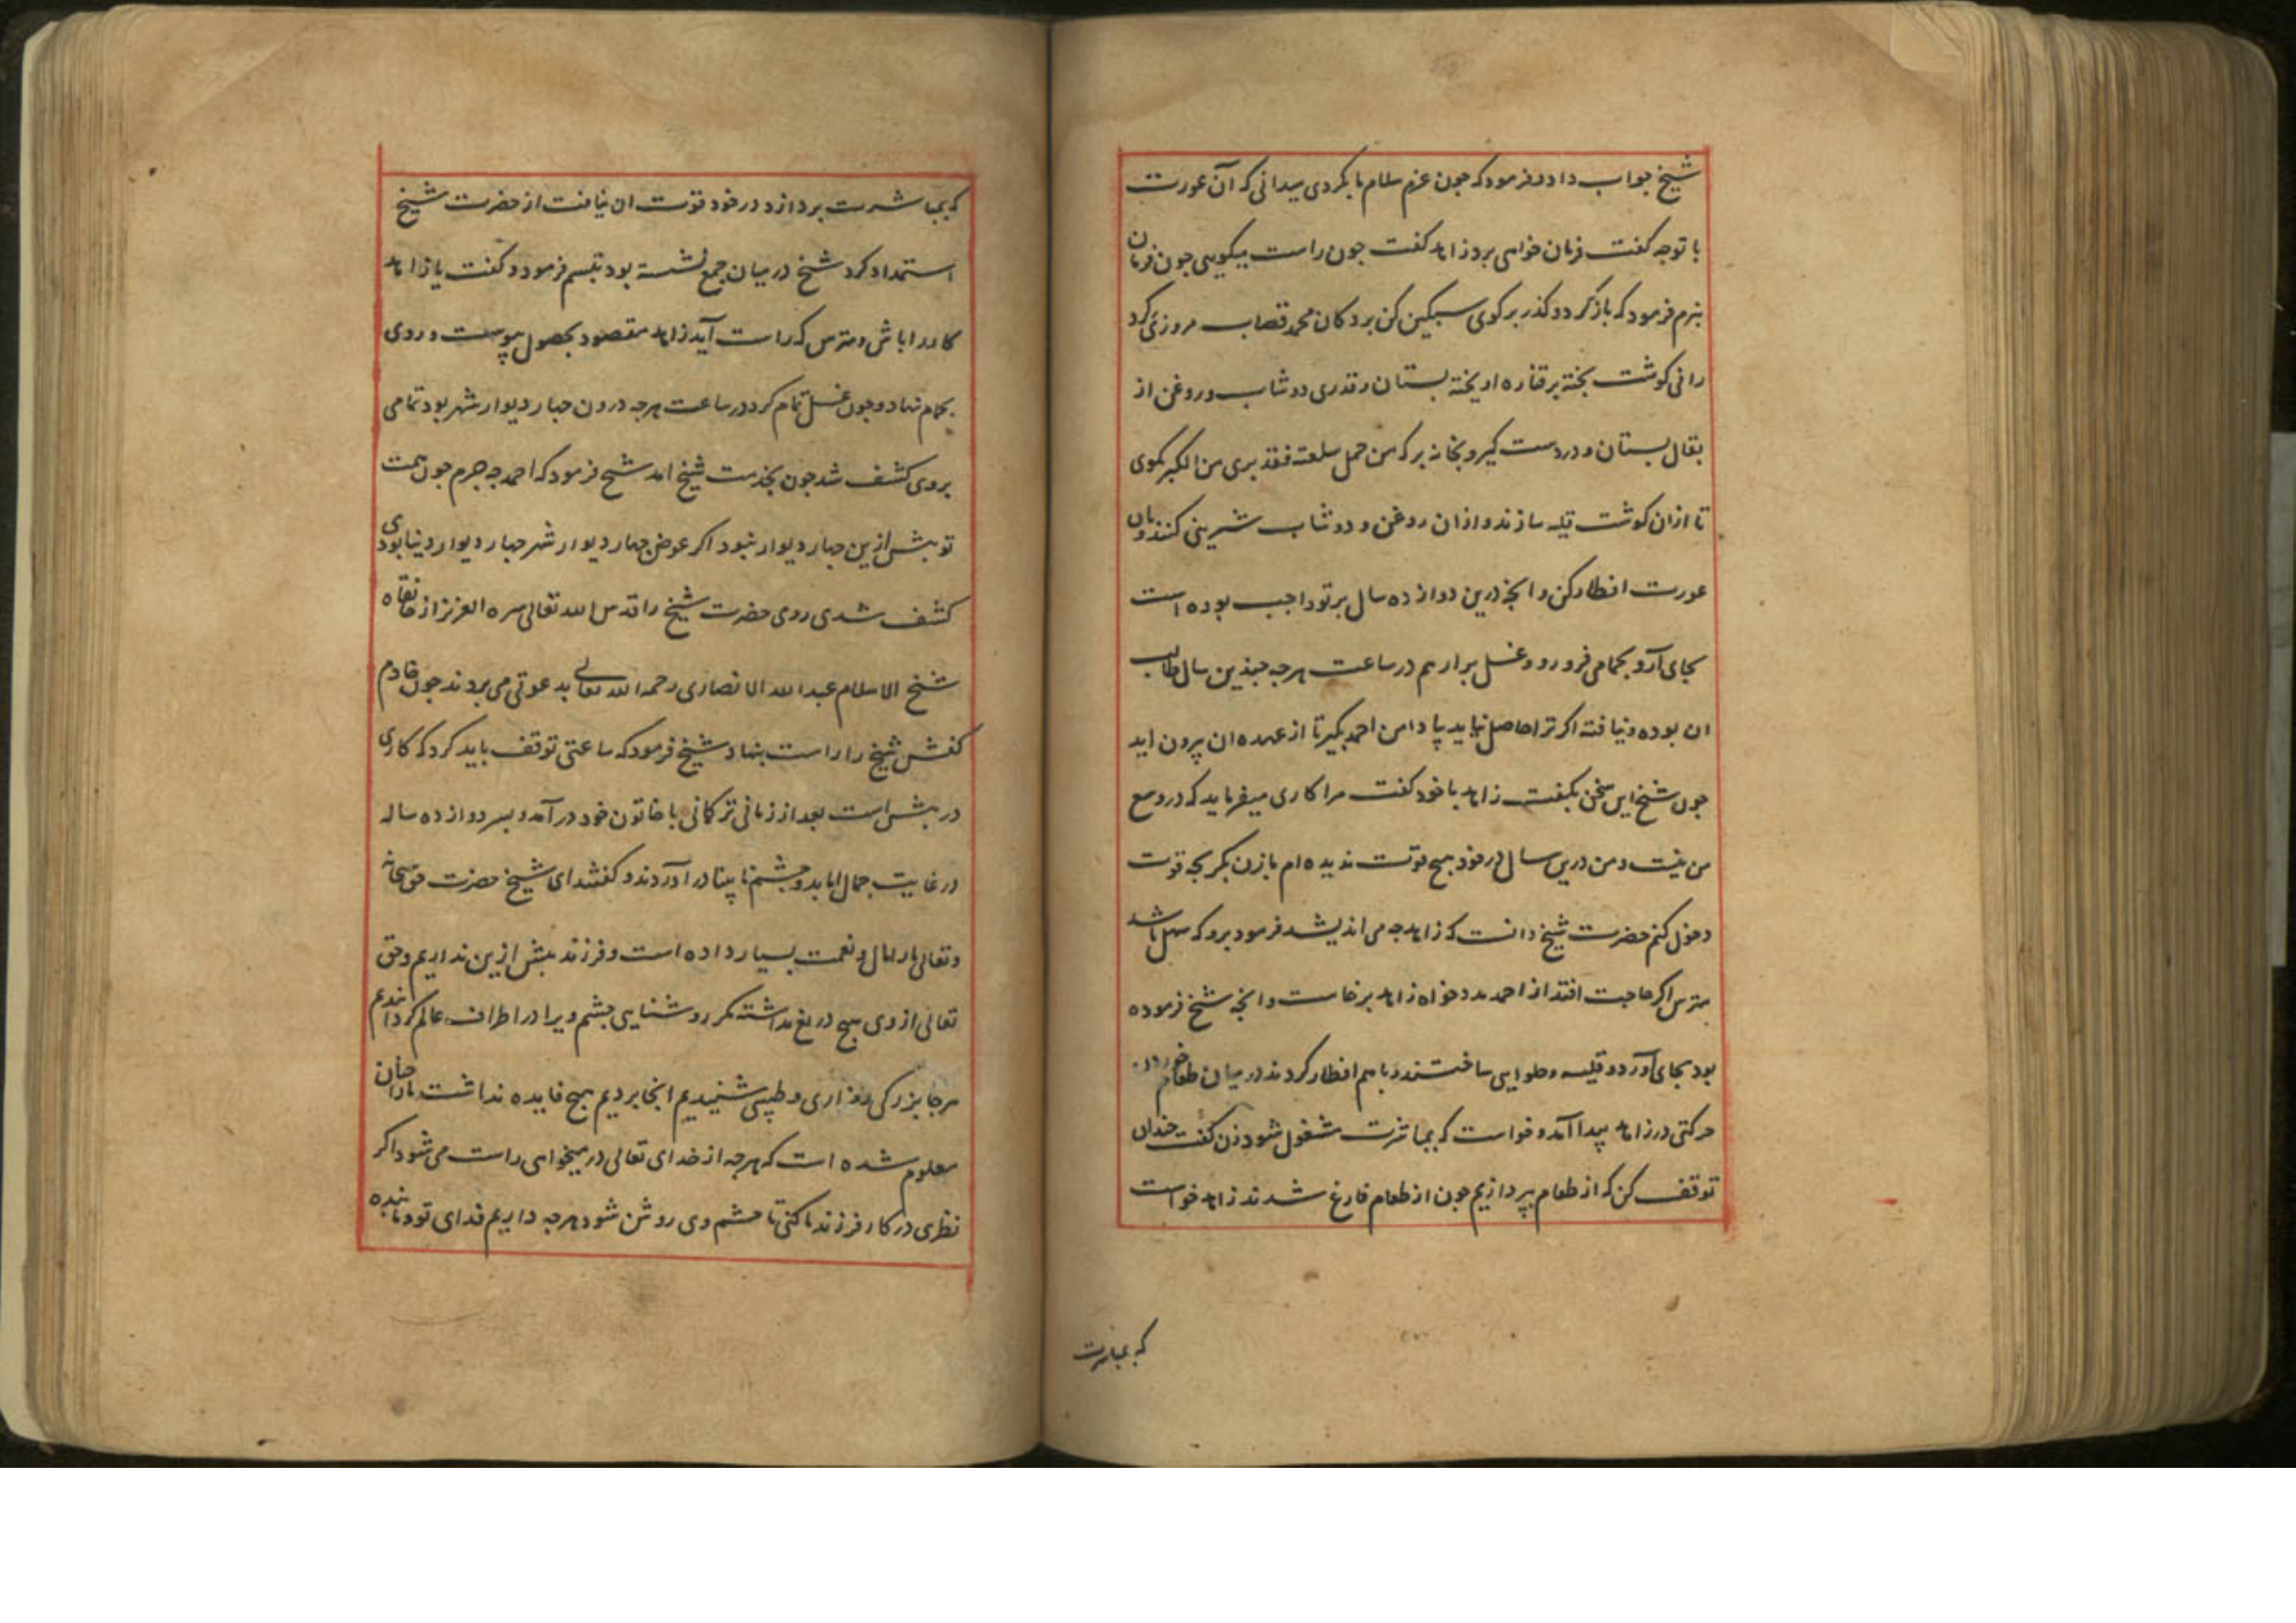 شیخ جواب داد و فرمود که جون عزم سلام ما کردی میدانی که آن عورت
با تو جه کفت فرمان خواهی برد زاهد کفت جون راست میکویی جون فرمان
بنرم فرمود که باز کرد و کذر بر کوی سبکین کن بر دکان محمد قصاب مروزی کرد
رانی کوشت بخته بر قناره اویخته بستان و قدری دوشاب و روغن از
بقال بستان و در دست کیر و بخانه بر که من حمل سلعته فقد بری من الکبر بکوی
تا از ان کوشت قلیه سازند و از ان روغن و دوشاب شیرینی کنند و بان
عورت افطار کن و انجه درین دوازده سال بر تو واجب بوده است
بجای آر و بحمامی فرو رو و غسل برار هم در ساعت هرجه جندین سال طالب
ان بوده و نیافته اکر ترا حاصل نیاید بیا دامن احمد بکیر تا از عهده ان بیرون اید
جون شیخ این سخن بکفت زاهد با خود کفت مرا کاری میفرماید که در وسع
من نیست و من درین سال در خود هیج قوت ندیده ام با زن بکر بجه قوت
دخول کنم حضرت شیخ دانست که زاهد جه می اندیشد فرمود برو که سهل باشد
مترس اکر حاجت افتد از احمد مدد خواه زاهد برخاست و انجه شیخ فرموده
بود بجای آورد و قلیه و حلوایی ساختند و با هم افطار کردند در میان طعام خوردن
حرکتی در زاهد پیدا آمد و خواست که بمباشرت مشغول شود زن کفت جندان
توقف کن که از طعام بپردازیم جون از طعام فارغ شدند زاهد خواست
که بمباشرت
که بمباشرت بردازد در خود قوت ان نیافت از حضرت شیخ
استمداد کرد شیخ در میان جمع نشسته بود تبسم فرمود و کفت یا زاهد
کار را باش و مترس که راست آید زاهد مقصود بحصول پیوست و روی
بحمام نهاد و جون غسل تمام کرد در ساعت هرجه درون جهار دیوار شهر بود تمامی
بر وی کشف شد جون بخدمت شیخ امد شیخ فرمود که احمد جه جرم جون همت
تو بیش ازین جهار دیوار نبود اکر عوض جهار دیوار شهر جهار دیوار دنیا بودی
کشف شدی روی حضرت شیخ را قدس الله تعالی سره العزیز از خانقاه
شیخ الاسلام عبد الله الانصاری رحمه الله تعالی بدعوتی می بردند جون خادم
کفش شیخ را راست بنهاد شیخ فرمود که ساعتی توقف باید کرد که کاری
در بیش است بعد از زمانی ترکمانی با خاتون خود در آمد و بسر دوازده ساله
در غایت جمال اما بدو جشم نابینا در آوردند و کفتند ای شیخ حضرت حق سبحانه
و تعالی ما را مال و نعمت بسیار داده است و فرزند بیش ازین نداریم و حق
تعالی از وی هیج دریغ نداشته مکر روشنایی جشم ویرا در اطراف عالم کردانیدیم
هر جا بزرکی و مزاری و طبیبی شنیدیم انجا بردیم هیج فایده نداشت ما را جنان
معلوم شده است که هرجه از خدای تعالی در میخواهی راست می شود اکر
نظری در کار فرزند ما کنی تا جشم وی روشن شود هرجه داریم فدای تو و ما بنده